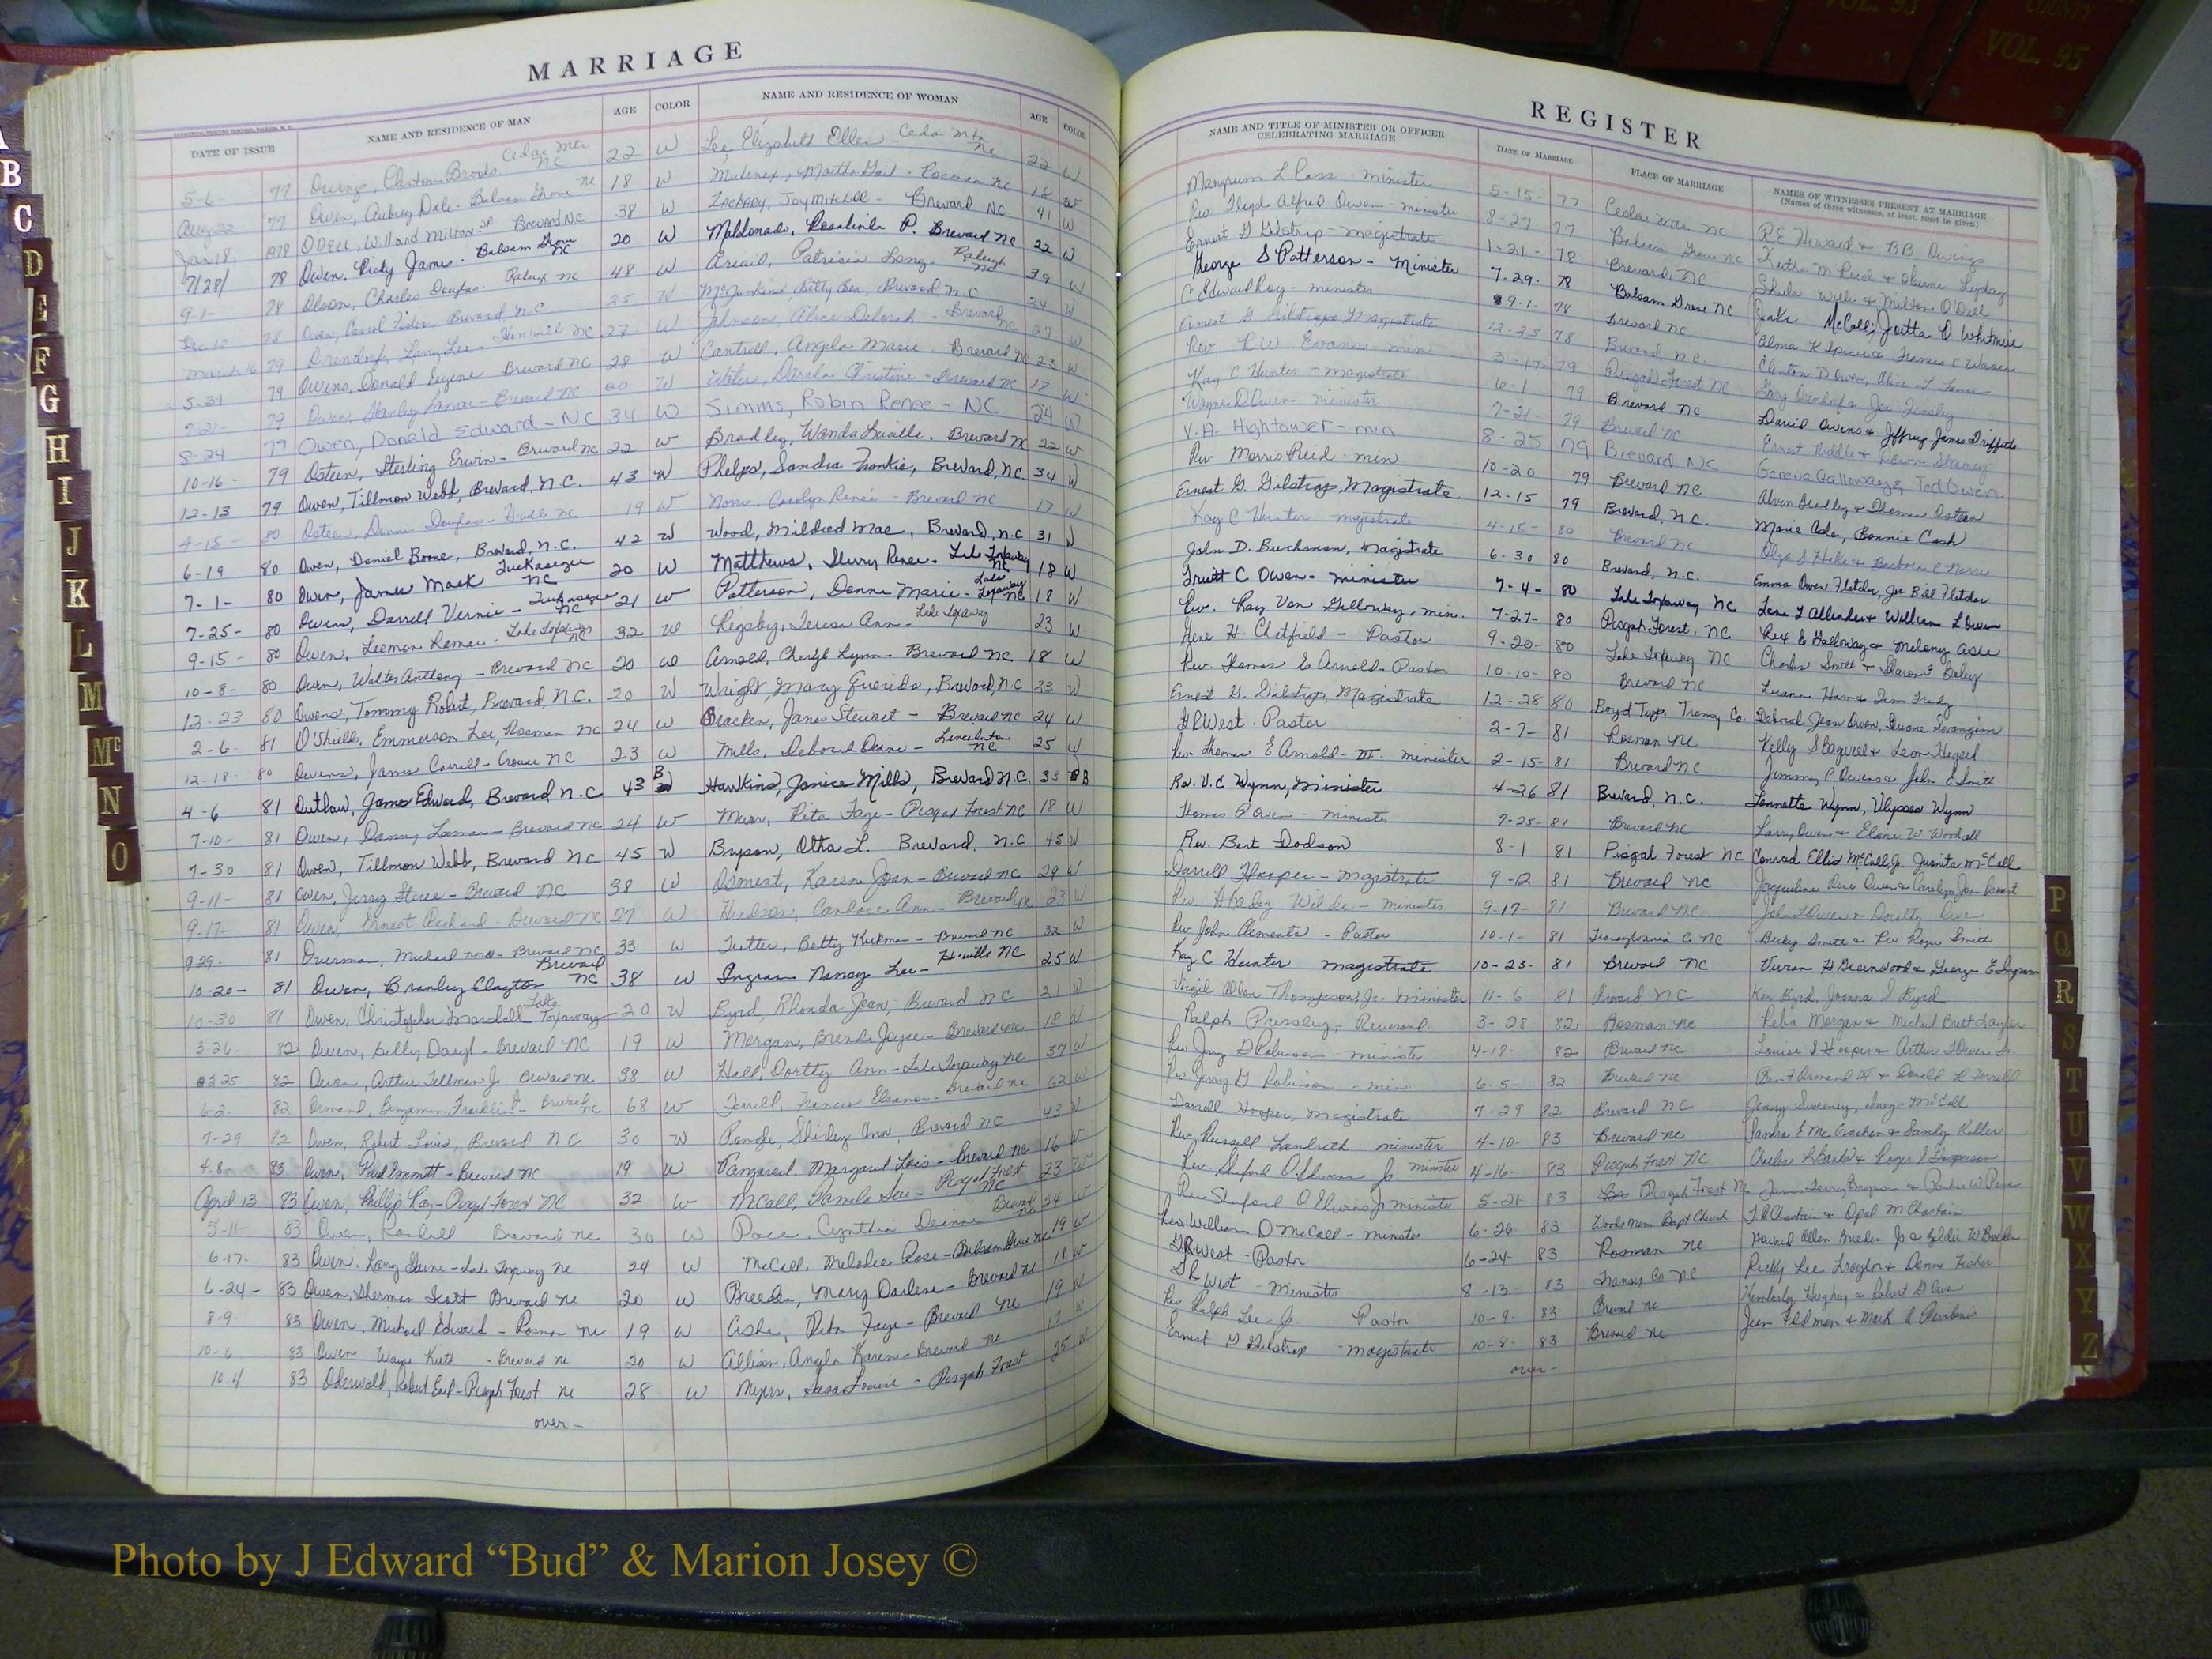 MARRIAGE
DATE OF ISSUE NAME AND RESIDENCE OF MAN AGE COLOR NAME AND RESIDENCE OF WOMAN AGE COLOR
5-6- 77 Owings, Clinton Brooks Cedar Mtn NC 22 W Lee, Elizabeth Ellen - Cedar Mtn NC 22 W
Aug 22 77 Owen, Aubrey Dale - Balsam Grove NC 18 W Martha Gail - Rosman NC 18 W
Jan 18, 1978 ODELL, Willard Milton Brevard NC 38 W Zachary, Joy Mitchell - Brevard NC 41 W
7/28/ 78 Owen, Ricky James - Balsam Grove NC 20 W Maldonado, Rosalinda P. Brevard NC 22 W
9-1- 78 Olson, Charles Douglas - Raleigh NC 48 W Patricia Long - Raleigh NC 39 W
Dec 12 78 Owen, Carrol Brevard N.C 25 W Betty Bea, Brevard N.C 24 W
March 16 79 Larry Lee - H'ville NC 27 W Johnson, Alice Deborah - Brevard NC 27 W
5-31 79 Owens, Donald Eugene Brevard NC 28 W Cantrell, Angela Marie - Brevard NC 23 W
7-21- 79 Owen, Stanley - Brevard NC 20 W Darla Christine - Brevard NC 17 W
8-24 79 Owen, Donald Edward - NC 34 W Simms, Robin Renee - NC 24 W
10-16- 79 Osteen, Sterling Erwin - Brevard NC 22 W Bradley, Wanda Lucille, Brevard NC 22 W
12-13 79 Owen, Tillmon Webb, Brevard, N.C. 43 W Phelps, Sandra Frankie, Brevard, N.C. 34 W
4-15- 80 Osteen, Dennis Douglas - NC 19 W Carolyn Renee - Brevard NC 17 W
6-19 80 Owen, Daniel Boone, Brevard, N.C. 42 W Wood, Mildred Mae, Brevard, N.C 31 W
7-1- 80 Owen, James Mack Tuckasegee NC 20 W Matthews, Sherry Renee - Lake Toxaway NC 18 W
7-25- 80 Owen, Darrell Vernie - Tuckasegee NC 21 W Patterson, Donna Marie - Lake Toxaway NC 18 W
9-15- 80 Owen, Leemon Lamar - Lake Toxaway NC 32 W Teresa Ann - Lake Toxaway 23 W
10-8- 80 Owen, Walter Anthony - Brevard NC 20 W Arnold, Cheryl Lynn - Brevard NC 18 W
12-23 80 Owens, Tommy Robert, Brevard, N.C. 20 W Wright, Mary Brevard, N.C 23 W
2-6- 81 O'Shields, Emmerson Lee, Rosman NC 24 W Bracken, Janie Stewart - Brevard NC 24 W
12-18- 80 Owens, James Carroll - Crouse NC 23 W Mills, Deborah Diane - Lincolnton NC 25 W
4-6 81 Outlaw, James Edward, Brevard N.C 43 B Hawkins, Janice Mills, Brevard N.C. 33 B
7-10- 81 Owen, Danny Lamar - Brevard NC 24 W Rita Faye - Pisgah Forest NC 18 W
7-30 81 Owen, Tillmon Webb, Brevard NC 45 W Bryson, Otta L. Brevard, N.C 45 W
9-11- 81 Owen, Jerry Steve - Brevard NC 38 W Osment, Karen Joan - Brevard NC 29 W
9-17- 81 Owen, Ernest Richard - Brevard NC 27 W Hudson, Candace Ann - Brevard NC 23 W
9-29- 81 Overman, Michael - Brevard NC 33 W Betty Kirkman - Brevard NC 32 W
10-20- 81 Owen, Branley Clayton Brevard NC 38 W Ingram Nancy Lee - H'ville NC 25 W
10-30 81 Owen, Christopher Marshall Lake Toxaway 20 W Byrd, Rhonda Jean, Brevard NC 21 W
3-26- 82 Owen, Billy Daryl - Brevard NC 19 W Morgan, Brenda Joyce - Brevard NC 18 W
3-25 82 Owen, Arthur Tillman Jr. Brevard NC 38 W Hall, Dorothy Ann - Lake Toxaway NC 37 W
6-2- 82 Ormand, Benjamin Franklin Jr - Brevard NC 68 W Terrell, Frances Eleanor - Brevard NC 62 W
7-29 82 Owen, Robert Louis, Brevard NC 30 W Pangle, Shirley Ann, Brevard NC 43 W
4-8- 83 Owen, Paul Emmett - Brevard NC 19 W Margaret Lois - Brevard NC 16 W
April 13 83 Owen, Phillip Ray - Pisgah Forest NC 32 W McCall, Pamela Sue - Pisgah Forest NC 23 W
5-11- 83 Owen, Randall Brevard NC 30 W Pace, Cynthia Deanne Brevard NC 24 W
6-17- 83 Owen, Larry - Lake Toxaway NC 24 W McCall, Melodie Rose - Balsam Grove NC 19 W
6-24- 83 Owen, Sherman Scott Brevard NC 20 W Breeden, Mary Darlene - Brevard NC 18 W
8-9- 83 Owen, Michael Edward - Rosman NC 19 W Ashe, Rita Faye - Brevard NC 19 W
10-6 83 Owen Wayne Keith - Brevard NC 20 W Allison, Angela Karen - Brevard NC 17 W
10-4 83 Oderwald, Robert Earl - Pisgah Forest NC 28 W Myers, Sara Louise - Pisgah Forest 25 W
over-
REGISTER
NAME AND TITLE OF MINISTER OR OFFICER CELEBRATING MARRIAGE DATE OF MARRIAGE PLACE OF MARRIAGE NAMES OF WITNESSES PRESENT AT MARRIAGE
(Names of three witnesses, at least, must be given)
Mangrum L Pass - minister 5-15- 77 Cedar Mtn NC R E Howard & B B Owings
Rev. Floyd Alfred Owen - minister 8-27 77 Balsam Grove NC
Ernest G Gilstrap - magistrate 1-21- 78 Brevard, NC Sheila Wells & Milton O'Dell
George S Patterson - Minister 7-29- 78 Balsam Grove NC Jake McCall; Joetta O Whitmire
C Edward Roy - minister 9-1- 78 Brevard NC
Ernest G Gilstrap, Magistrate 12-23 78 Brevard N.C. Clinton D. Owen, Alice L. Lance
Rev R W Evans - min 3-17- 79 Pisgah Forest NC
Kay C Hunter - magistrate 6-1 79 Brevard NC David Owens & Jeffrey James Griffith
Wayne D Owen - minister 7-21- 79 Brevard NC Ernest Riddle & Dawn Stamey
V.A. Hightower - min 8-25 79 Brevard NC Geneva Galloway & Ted Owen
Rev Morris Reid - min 10-20 79 Brevard NC Alvin Bradley & Thomas Osteen
Ernest G. Gilstrap, Magistrate 12-15 79 Brevard, N.C. Marie Ashe, Bonnie Cash
Kay C Hunter - magistrate 4-15- 80 Brevard NC
John D. Buchanan, Magistrate 6-30 80 Brevard, N.C. Emma Owen Fletcher, Joe Bill Fletcher
Truett C Owen - minister 7-4- 80 Lake Toxaway NC William L Owen
Rev. Ray Von Galloway, min. 7-27- 80 Pisgah Forest, NC Rex E Galloway & Melany Ashe
Gene H. Chatfield - Pastor 9-20- 80 Lake Toxaway NC Charles Smith & Sharon
Rev. Thomas E Arnold - Pastor 10-10- 80 Brevard NC
Ernest G. Gilstrap, Magistrate 12-28 80 Boyd Twp. Transy Co. Deborah Jean Owen, Duane Swangim
G R West - Pastor 2-7- 81 Rosman NC Kelly Stagwell & Leon
Rev. Thomas E Arnold - III. minister 2-15-81 Brevard NC Jimmy C Owens & John E Smith
Rev. V.C Wynn, Minister 4-26 81 Brevard, N.C. Lennette Wynn, Ulysses Wynn
Thomas R Owen - minister 7-25-81 Brevard NC Larry Owen & Elaine W Woodall
Rev. Bert Dodson 8-1 81 Pisgah Forest NC Conrad Ellis McCall, Jr. Juanita McCall
Darrell Hooper - magistrate 9-12- 81 Brevard NC
Rev. Wilde - minister 9-17- 81 Brevard NC
Rev John Clements - Pastor 10-1- 81 Transylvania Co NC Becky Smith & Rev Roger Smith
Kay C Hunter magistrate 10-23- 81 Brevard NC Vivian H Greenwood & George E Ingram
Virgil Allen Thompson, Jr. Minister 11-6 81 Brevard NC Ken Byrd, Joanna S Byrd
Ralph Pressley, Reverend. 3-28 82 Rosman NC Reba Morgan & Michael Brett
Rev Jerry D Robinson minister 4-18- 82 Brevard NC Louise S Hooper & Arthur T Owen Sr.
Rev Jerry D Robinson - min 6-5- 82 Brevard NC Ben F Ormand III & Donald R Terrell
Darrell Hooper, Magistrate 7-29 82 Brevard NC Jenny Sweeney, Inez McCall
Rev. Russell Landreth - minister 4-10- 83 Brevard NC Sandra E McCrachen & Sandy Keller
Rev. Shuford O. Edwins Jr minister 4-16- 83 Pisgah Forest NC
Rev Shuford O Edwins Jr minister 5-21- 83 Pisgah Forest NC
Rev William D McCall - minister 6-26- 83 Bapt Church Chastain & Opal M Chastain
G R West - Pastor 6-24- 83 Rosman NC Howard Allen Breeden Jr & Goldie W Breeden
G R West - Minister 8-13 83 Transy Co NC Ricky Lee Traylor & Donna Fisher
Rev Ralph Lee Jr Pastor 10-9- 83 Brevard NC
Ernest G Gilstrap - magistrate 10-8- 83 Brevard NC
over-
B
C
D
E
F
G
H
I
J
K
L
M
Mc
N
O
P
Q
R
S
T
U
V
W
X
Y
Z
COUNTY
VOL. 95
VOL. 93
Photo by J Edward “Bud” & Marion Josey ©